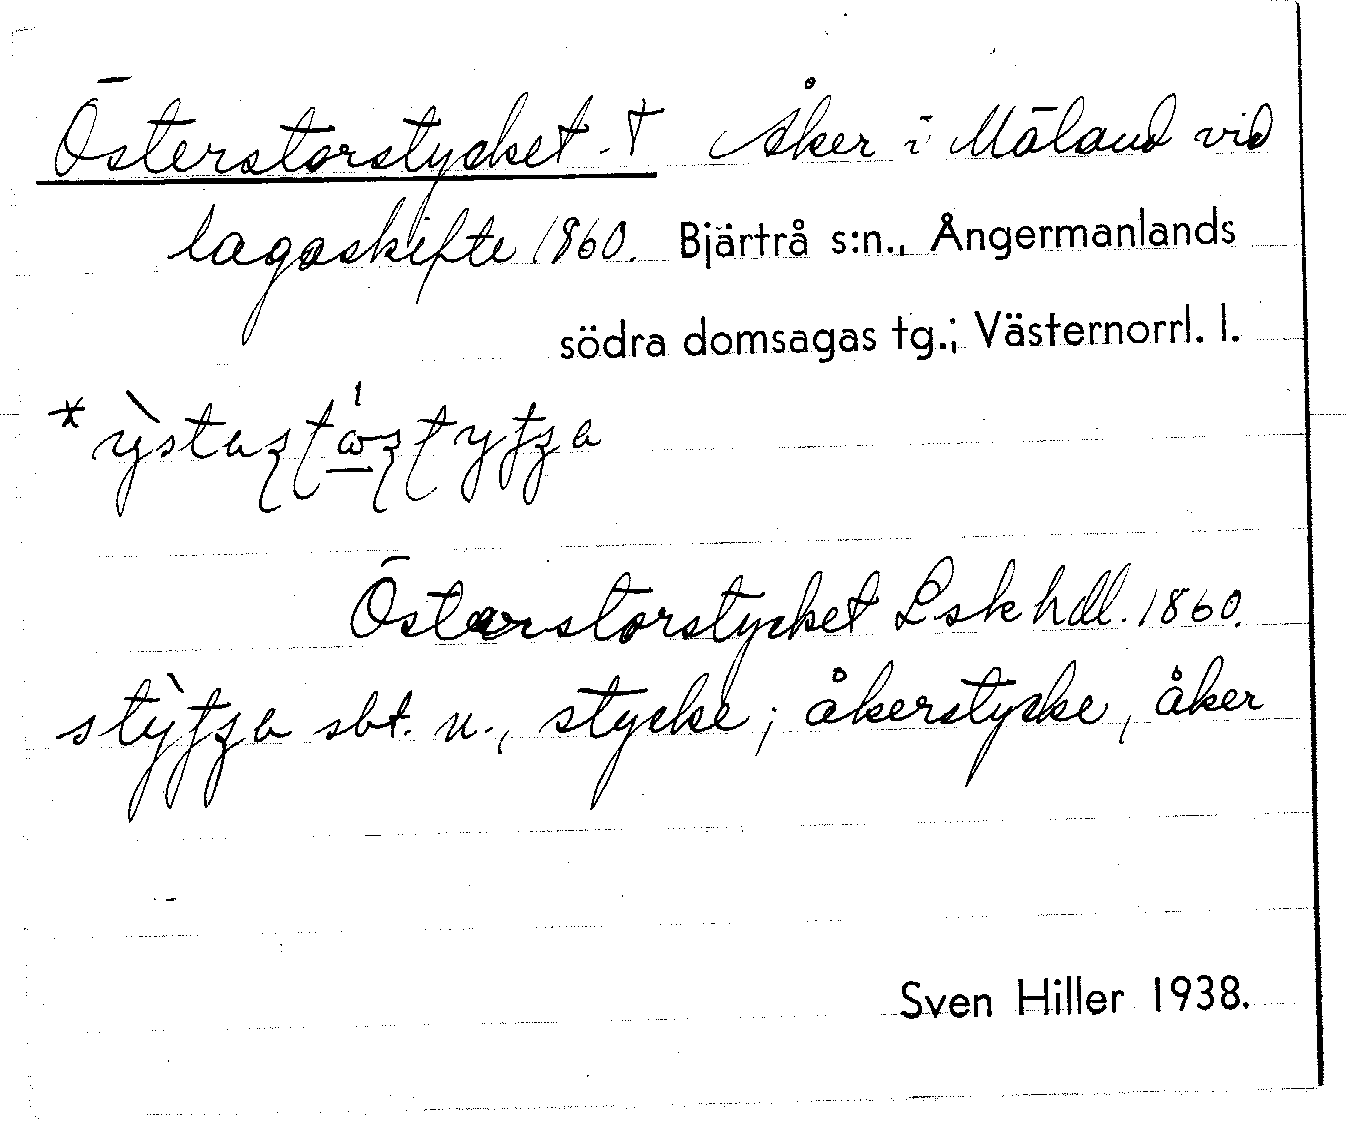 Österstorstycket † Åker i Mäland vid
lagaskifte 1860. Bjärtrå s:n., Ångermanlands
södra domsagas tg.; Västernorrl. l.
Österstorstycket Lsk hdl. 1860.
sbt. n., stycke; åkerstycke, åker
Sven Hiller 1938.